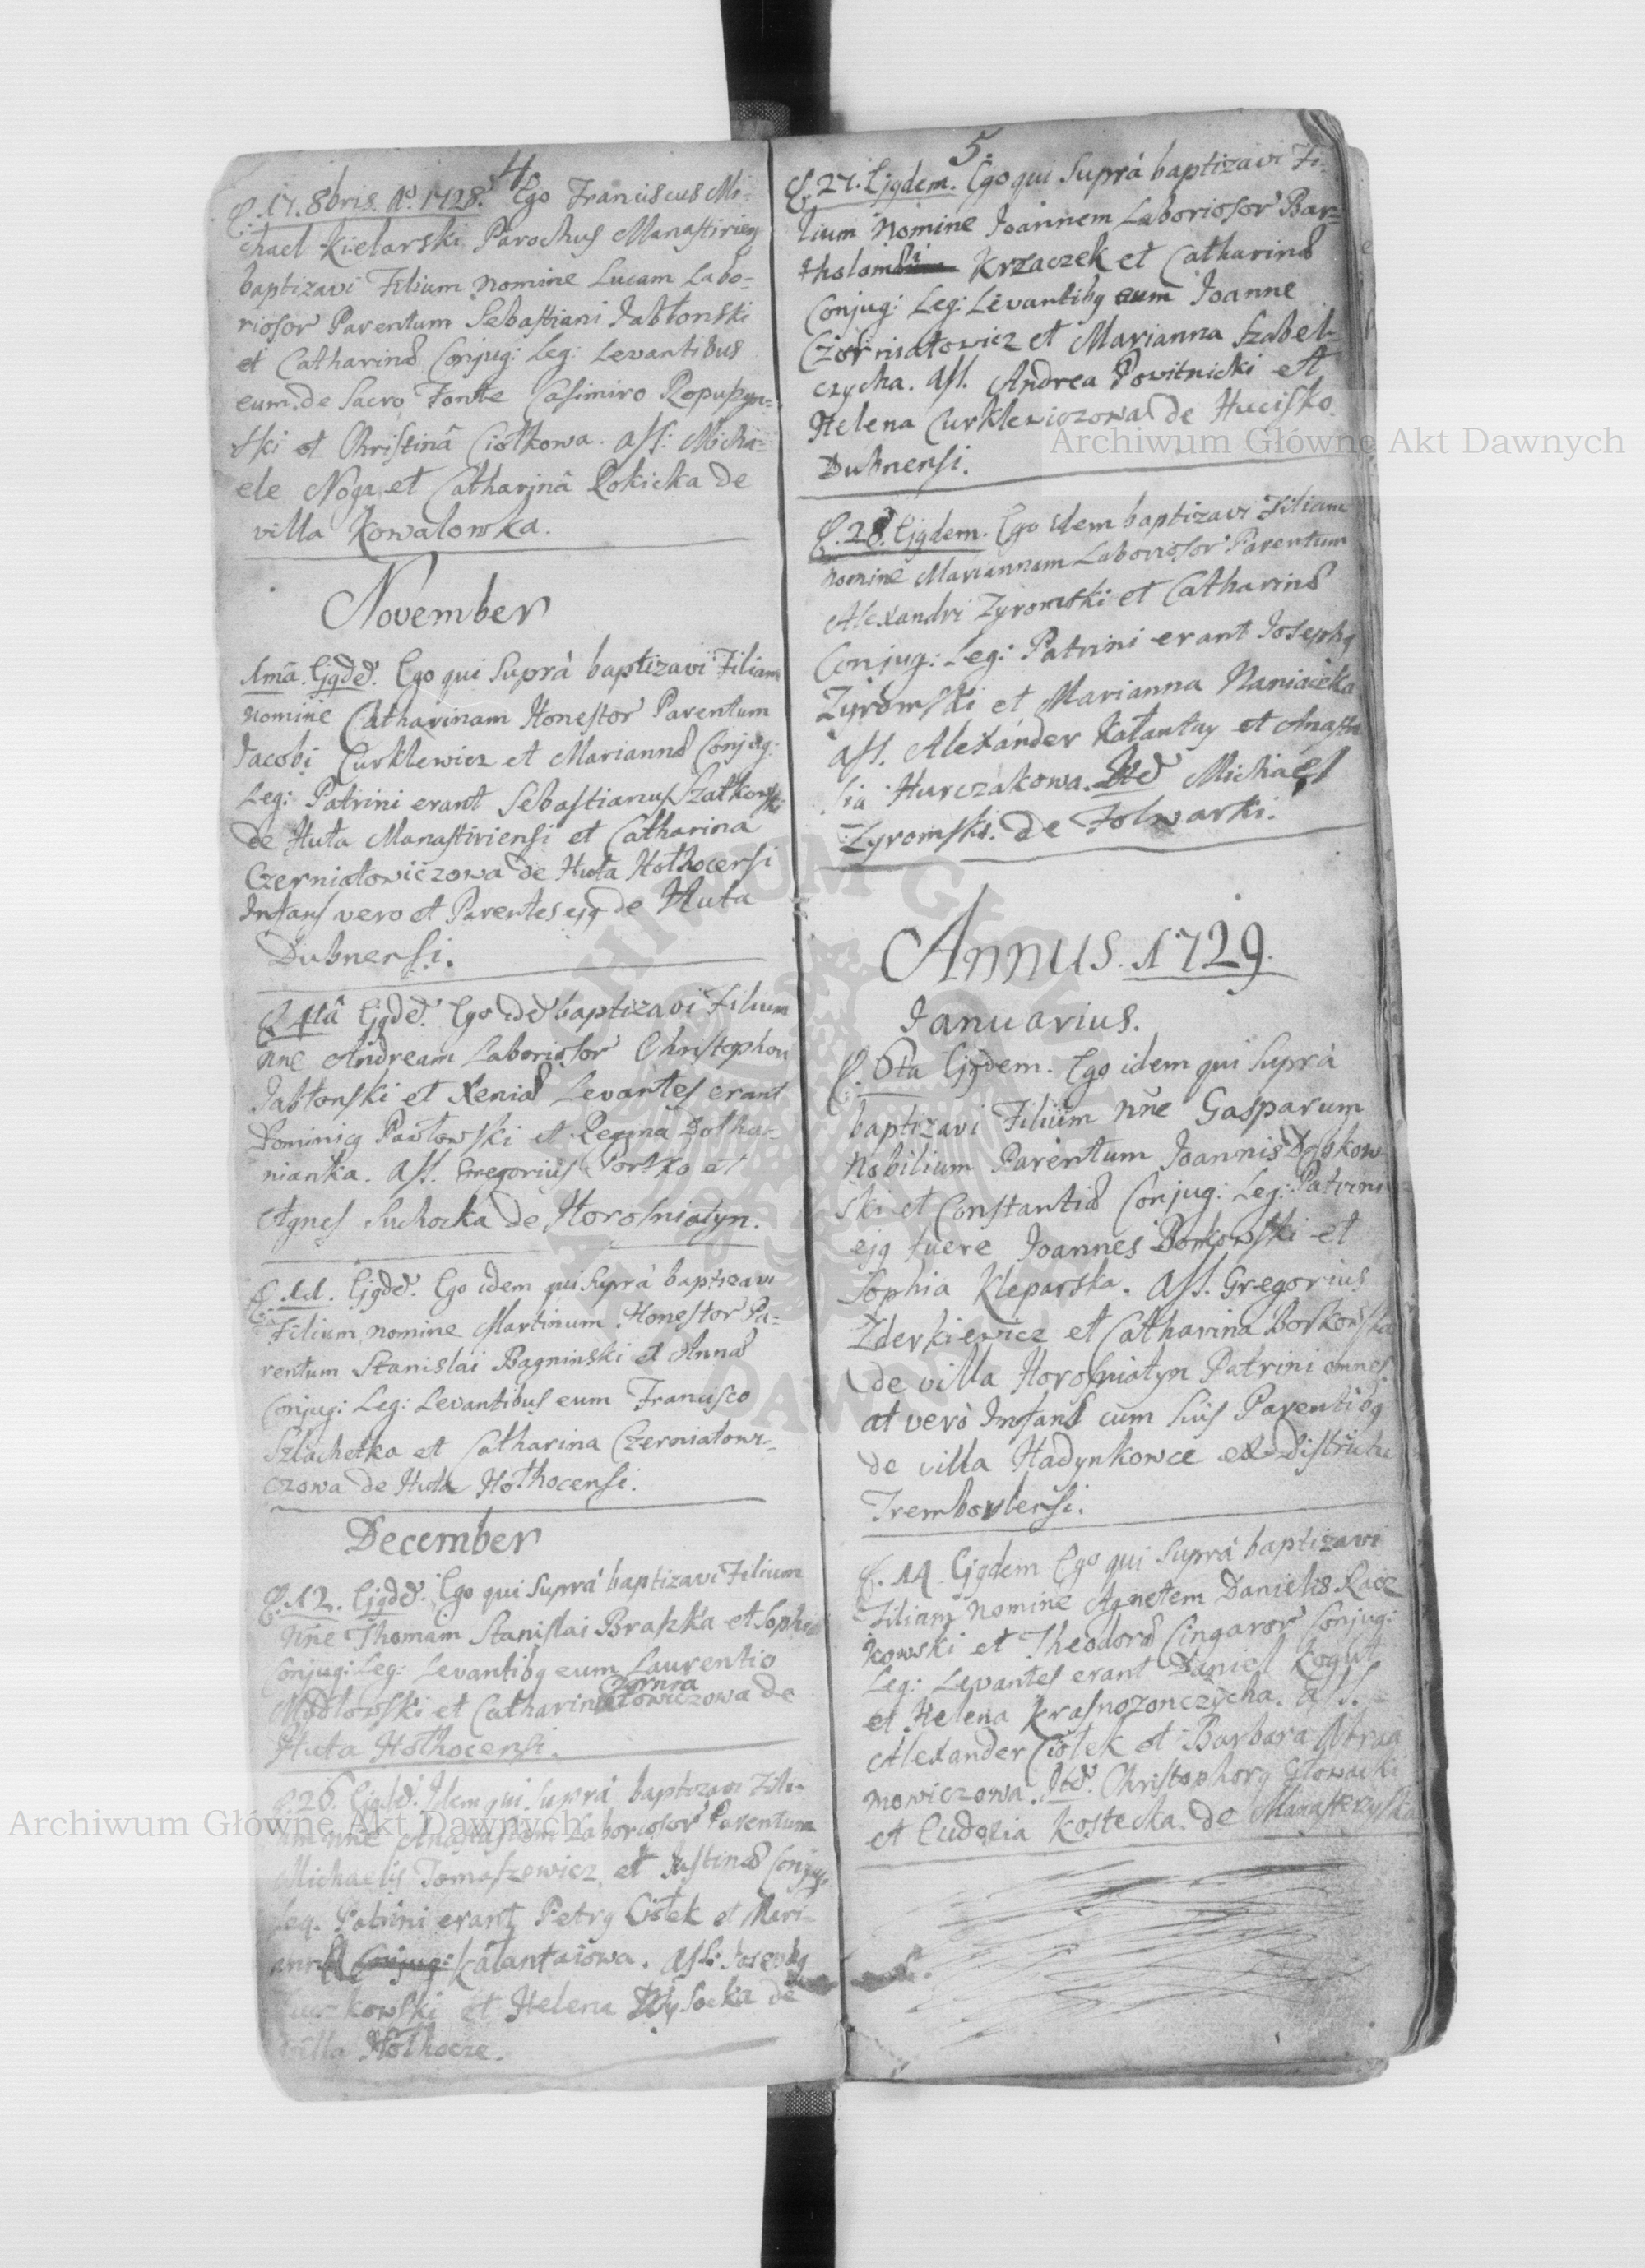 4.
D. 17. 8bris. Aº. 1728. Ego Franciscus Mi-
chael Kielarski Parochus Manastirien
baptizavi Filium nomine Lucam Labo-
riosor Parentum Sebastiani Jabłonski
et Catharinæ Conjug: Leg: Levantibus
eum de Sacro Fonte Casimiro
ski et Christinâ Ciołkowa. Ass: Micha-
ele Noga et Catharinâ Rokicka de
villa Kowalowka.
November
1mâ. Ejqdē. Ego qui Suprà baptizavi Filiam
nomine Catharinam Honestor Parentum
Jacobi Curklewicz et Mariannæ Conjug:
Leg: Patrini erant Sebastianus Szatkowski
de Huta Manastiriensi et Catharina
Czerniatowiczowa de Huta Hothocensi
Infans vero et Parentes ejq de Huta
Dubnensi.
Ejqdē. Ego idē baptizavi Filium
nne Andream Laboriosor Christophori
Jabłonski et Xeniæ Levantes erant
Dominicq Pawłowski et Regina Dotha-
nianka. Ass. Gregorius et
Agnes Suchocka de Horosniatyn.
D. 11. Ejqdē. Ego idem qui Suprà baptizavi
Filium nomine Martinum Honestor Pa-
rentum Stanislai Bagninski et Annæ
Conjug: Leg: Levantibus eum Francisco
Szlachetka et Catharina Czerniatowi-
czowa de Huta Hothocensi.
December
D. 12. Ejqdē. Ego qui Suprà baptizavi Filium
Nn̄e Thomam Stanislai Braszka et Sophiæ
Conjug: Leg: Levantibq eum Laurentio
Czernia
Modłowski et Catharina towiczowa de
Huta Hothocensi.
D. 26. Ejqdē. Idem qui Suprà baptizavi Fili-
am nne Anastasiam Laboriosor Parentum
Michaelis Tomaszewicz et Justinæ Conjug:
Leg. Patrini erant Petrq Ciołek et Mari-
anna Conjug: Kałantaiowa. Ass: Josephq
et Helena Wysocka de
villa Hothocze.
5.
D. 27. Ejqdem. Ego qui Suprà baptizavi Fi-
lium Nomine Joannem Laboriosor Bar-
tholomæi Krzaczek et Catharinæ
Conjug: Leg: Levantibq eum Joanne
Czerniatowicz et Marianna Szabel-
czycha. Ass. Andrea Powitnicki et
Helena Curklewiczowa de Hucisko
Dubnensi.
D. 28. Ejqdem. Ego idem baptizavi Filiam
nomine Mariannam Laboriosor Parentum
Alexandri Zyromski et Catharinæ
Conjug: Leg: Patrini erant Josephq
Zyromski et Marianna Naniacska
Ass. Alexander Kałantay et Anasta
sia Hurczakowa. Itē Michael
Zyromski. de Folwarki.
Annus. 1729.
Januarius.
D. 6ta Ejqdem. Ego idem qui Suprà
baptizavi Filium nn̄e Gasparum
Nobilium Parentum Joannis Dębkow
ski et Constantiæ Conjug: Leg: Patrini
ejq fuere Joannes Borkowski et
Sophia Kleparska. Ass. Gregorius
Zderkiewicz et Catharina Borkowska
de villa Horosniatyn Patrini omnes
at verò Infans cùm Suis Parentibq
de villa Hadynkowce ex Districtu
Trembovlensi.
D. 14. Ejqdem Ego qui Suprà baptizavi
Filiam Nomine Agnetem Danielis Racz
kowski et Theodoræ Cingaror Conjug:
Leg: Levantes erant Daniel Kogut
et Helena Krasnozonczycha. Ass.
Alexander Ciołek et Barbara Abraa
mowiczowa. Itē. Christophorq Głowacki
et Eudoxia Kostecka. de Manasterzyska
Archiwum Główne Akt Dawnych
Archiwum Główne Akt Dawnych
ARCHIWUM GŁÓWNE AKT DAWNYCH